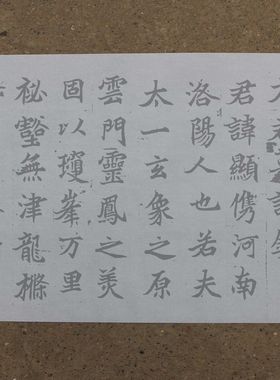 君諱顯儁河南
洛陽人也若夫
太一玄象之原
雲門靈鳳之美
固以瓊峯万里
祕壑無津龍